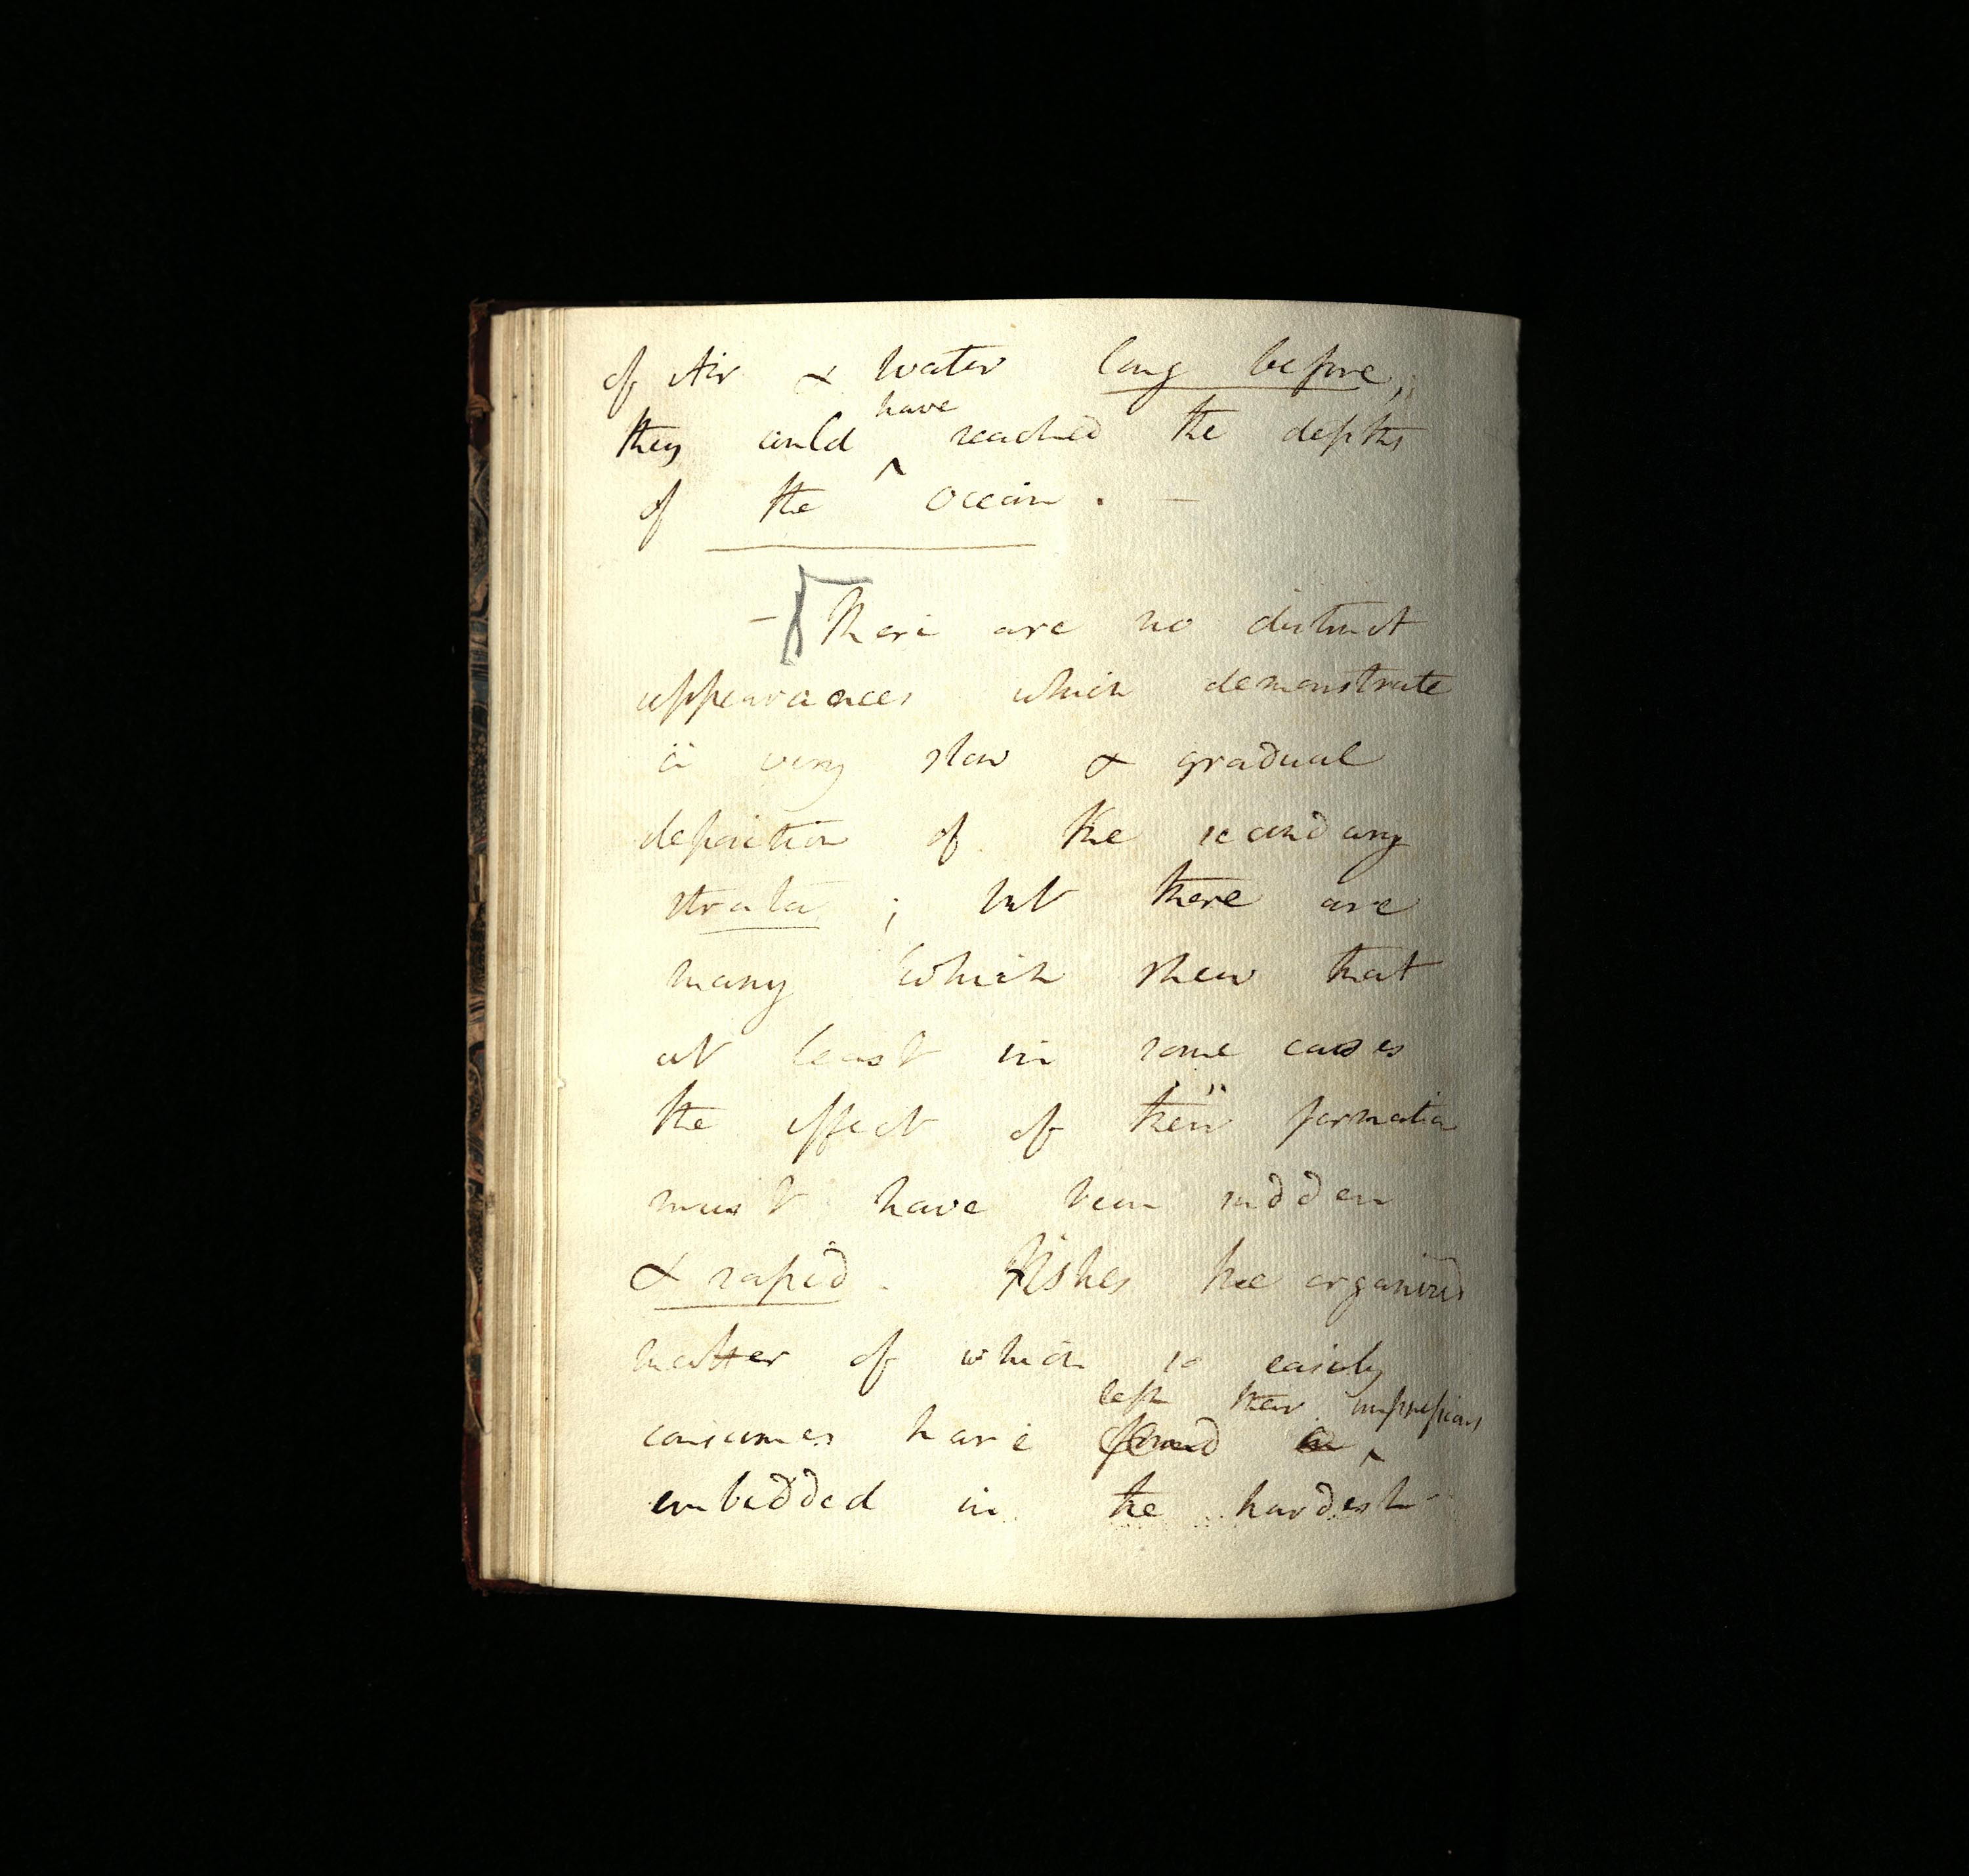 of Air & Water long before,
have
they could reached the depths
of the Ocean. —
— There are no distinct
appearances which demonstrate
a very slow & gradual
deposition of the secondary
strata; but there are
many which shew that
at least in some cases
the effect of their formation
must have been sudden
& rapid. Fishes the organized
matter of which so easily
left their impressions
consumes have found in
embedded in the hardest